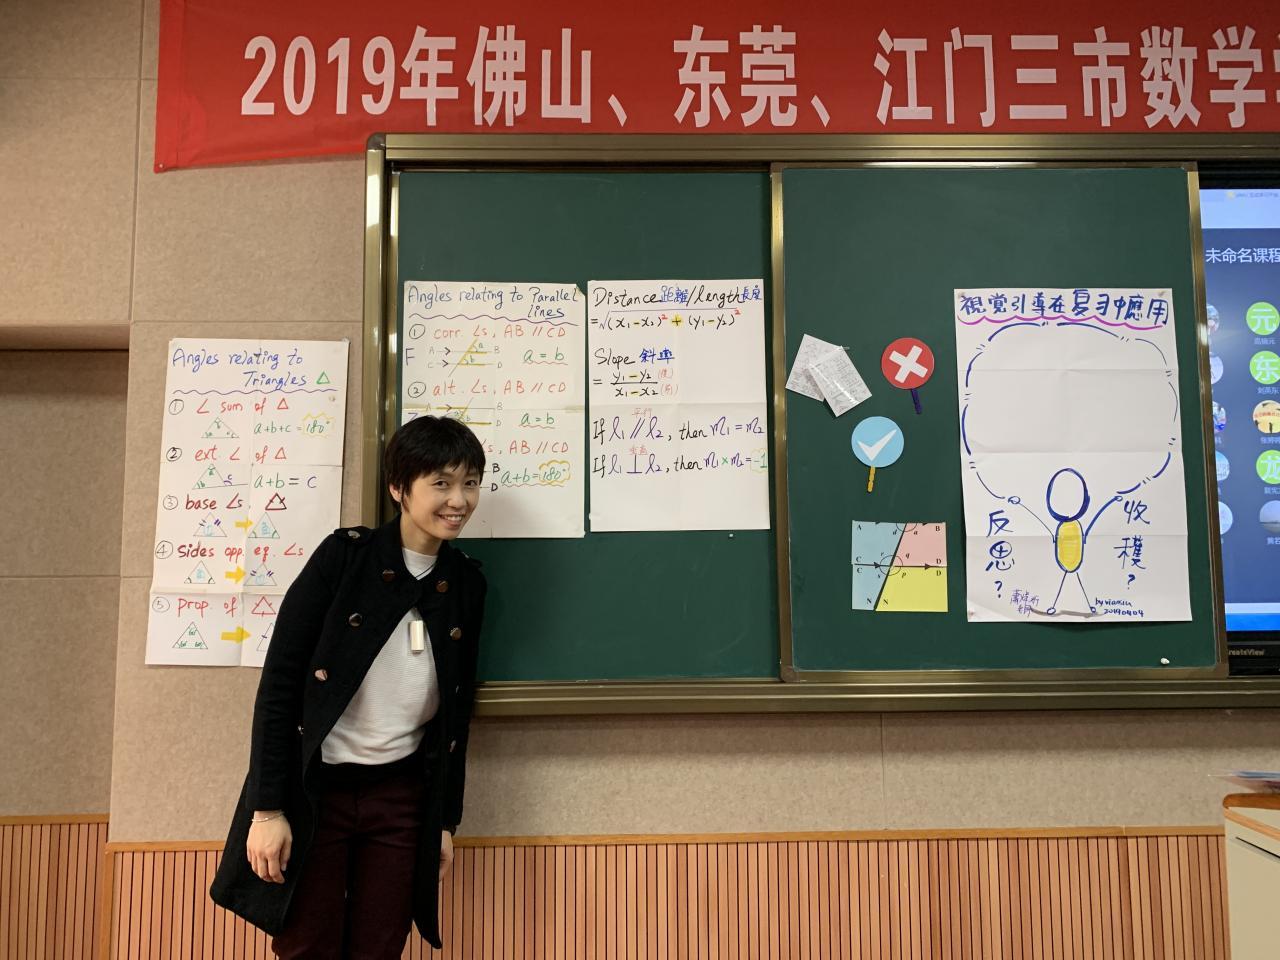 2019年佛山、东莞、江门三市数学
Angles relating to
Triangles △
① ∠ sum of △
a+b+c=180°
② ext. ∠ of △
a+b=c
③ base ∠s
④ sides opp. eq. ∠s
⑤ prop. of
Angles relating to Parallel
lines
① corr. ∠s, AB // CD
F
A B
C D
a
b
a=b
② alt. ∠s, AB // CD
A B
D
a=b
∠s, AB // CD
B
D
a+b=180°
Distance距離/length長度
=√(x₁-x₂)²+(y₁-y₂)²
Slope 斜率
= y₁-y₂
x₁-x₂
平行
If l₁ // l₂, then m₁=m₂
垂直
If l₁ ⊥ l₂, then m₁×m₂=-1
A B
d a
C D
C D
N N
視覚引導在复习中應用
反思?
收穫?
by vianus
20190404
未命名课程
元
东
龙
CreateView